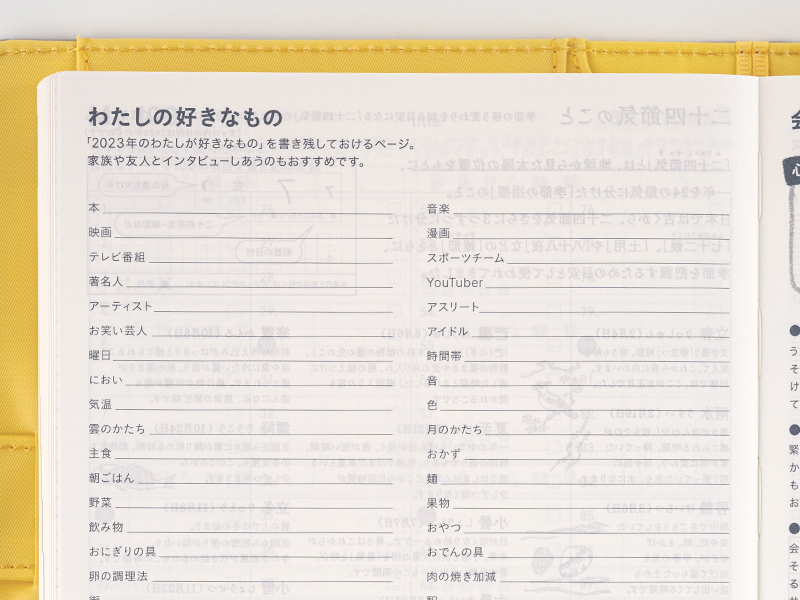 わたしの好きなもの
「2023年のわたしが好きなもの」を書き残しておけるページ。
家族や友人とインタビューしあうのもおすすめです。
本
映画
テレビ番組
著名人
アーティスト
お笑い芸人
曜日
におい
気温
雲のかたち
主食
朝ごはん
野菜
飲み物
おにぎりの具
卵の調理法
音楽
漫画
スポーツチーム
YouTuber
アスリート
アイドル
時間帯
音
色
月のかたち
おかず
麺
果物
おやつ
おでんの具
肉の焼き加減